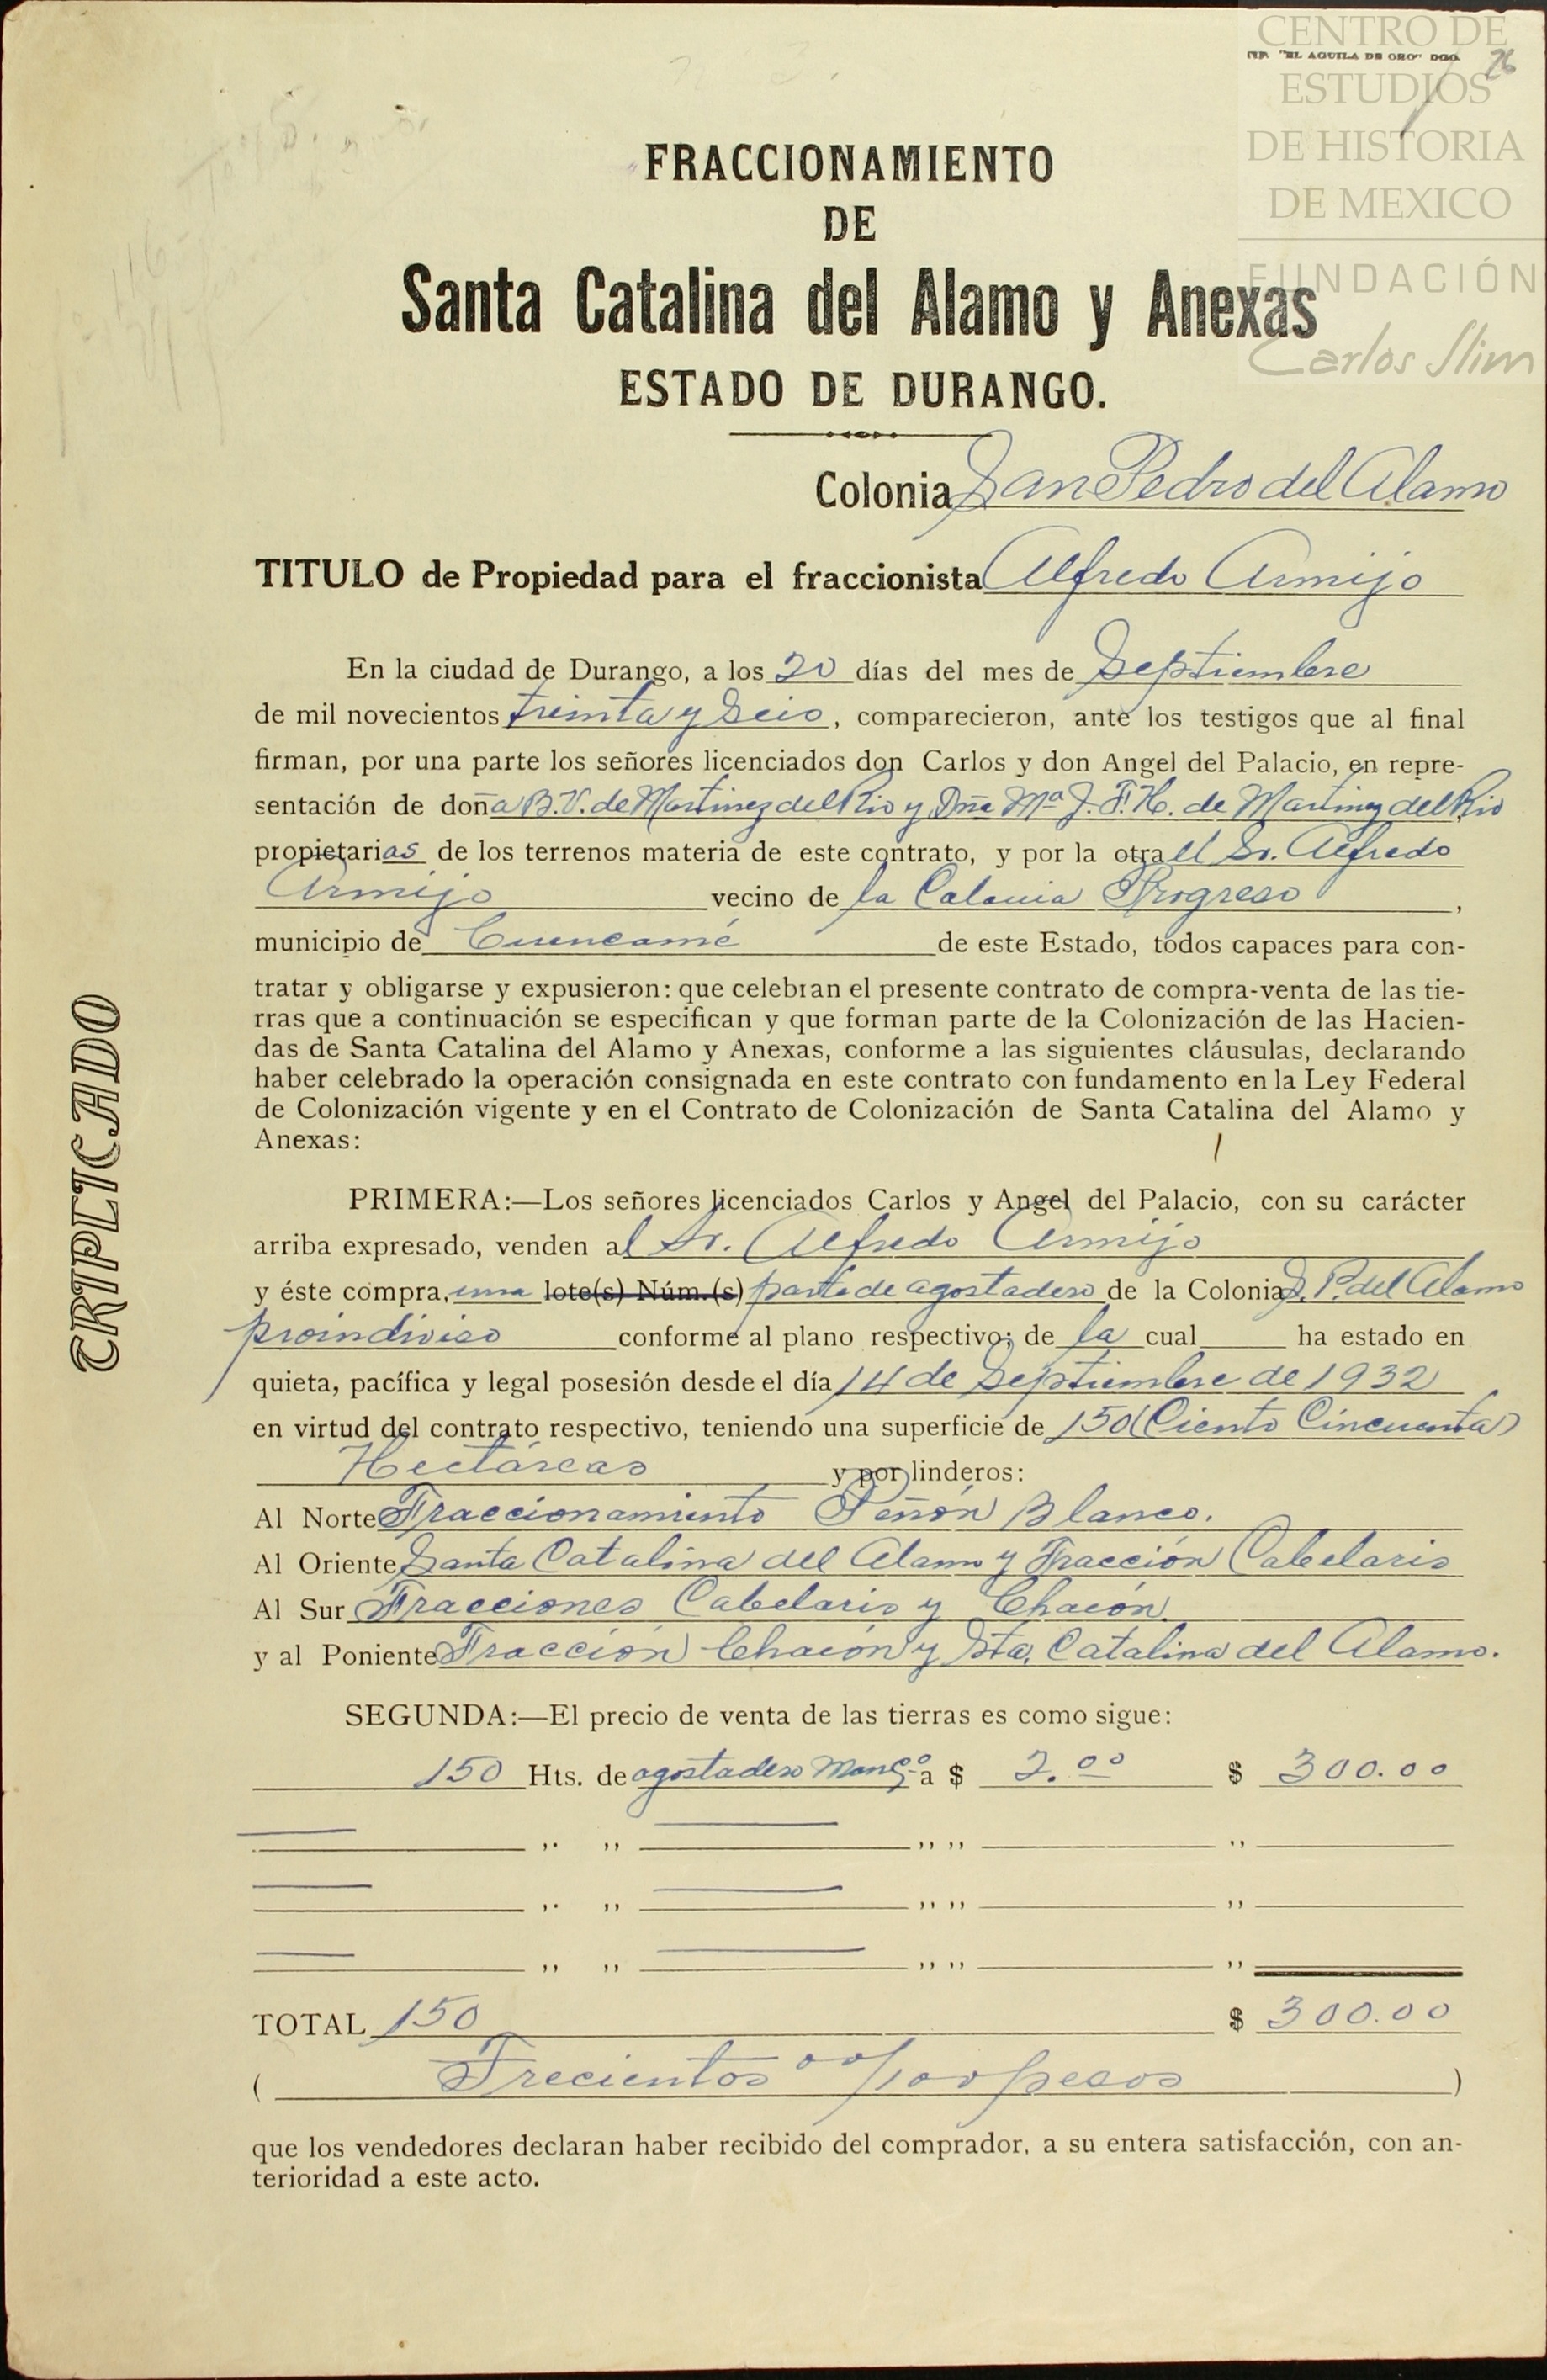 CENTRO DE
ESTUDIOS
DE HISTORIA
DE MEXICO
FUNDACIÓN
Carlos Slim
"EL AGUILA DE ORO" DGO.
76
FRACCIONAMIENTO
DE
Santa Catalina del Alamo y Anexas
ESTADO DE DURANGO.
Colonia San Pedro del Alamo
TITULO de Propiedad para el fraccionista Alfredo Armijo
En la ciudad de Durango, a los 20 días del mes de Septiembre
de mil novecientos treinta y Seis, comparecieron, ante los testigos que al final
firman, por una parte los señores licenciados don Carlos y don Angel del Palacio, en repre-
sentación de doña B. V. de Martinez del Rio y Dña Mª J. F. H. de Martinez del Rio
propietarias de los terrenos materia de este contrato, y por la otra el Sr. Alfredo
Armijo vecino de la Colonia Progreso,
municipio de Cuencamé de este Estado, todos capaces para con-
tratar y obligarse y expusieron: que celebran el presente contrato de compra-venta de las tie-
rras que a continuación se especifican y que forman parte de la Colonización de las Hacien-
das de Santa Catalina del Alamo y Anexas, conforme a las siguientes cláusulas, declarando
haber celebrado la operación consignada en este contrato con fundamento en la Ley Federal
de Colonización vigente y en el Contrato de Colonización de Santa Catalina del Alamo y
Anexas:
PRIMERA:—Los señores licenciados Carlos y Angel del Palacio, con su carácter
arriba expresado, venden al Sr. Alfredo Armijo
y éste compra, una lote(s) Núm.(s) parte de agostadero de la Colonia S. P. del Alamo
proindiviso conforme al plano respectivo; de la cual ha estado en
quieta, pacífica y legal posesión desde el día 14 de Septiembre de 1932
en virtud del contrato respectivo, teniendo una superficie de 150 (Ciento Cincuenta)
Hectáreas y por linderos:
Al Norte Fraccionamiento Peñón Blanco.
Al Oriente Santa Catalina del Alamo y Fracción Cabelaris
Al Sur Fracciones Cabelaris y Chacón.
y al Poniente Fracción Chacón y Sta. Catalina del Alamo.
SEGUNDA:—El precio de venta de las tierras es como sigue:
150 Hts. de agostadero a $ 2.00 $ 300.00
,, ,, ,, ,, ,,
,, ,, ,, ,, ,,
,, ,, ,, ,, ,,
TOTAL 150 $ 300.00
( Trecientos 00/100 pesos )
que los vendedores declaran haber recibido del comprador, a su entera satisfacción, con an-
terioridad a este acto.
TRIPLICADO